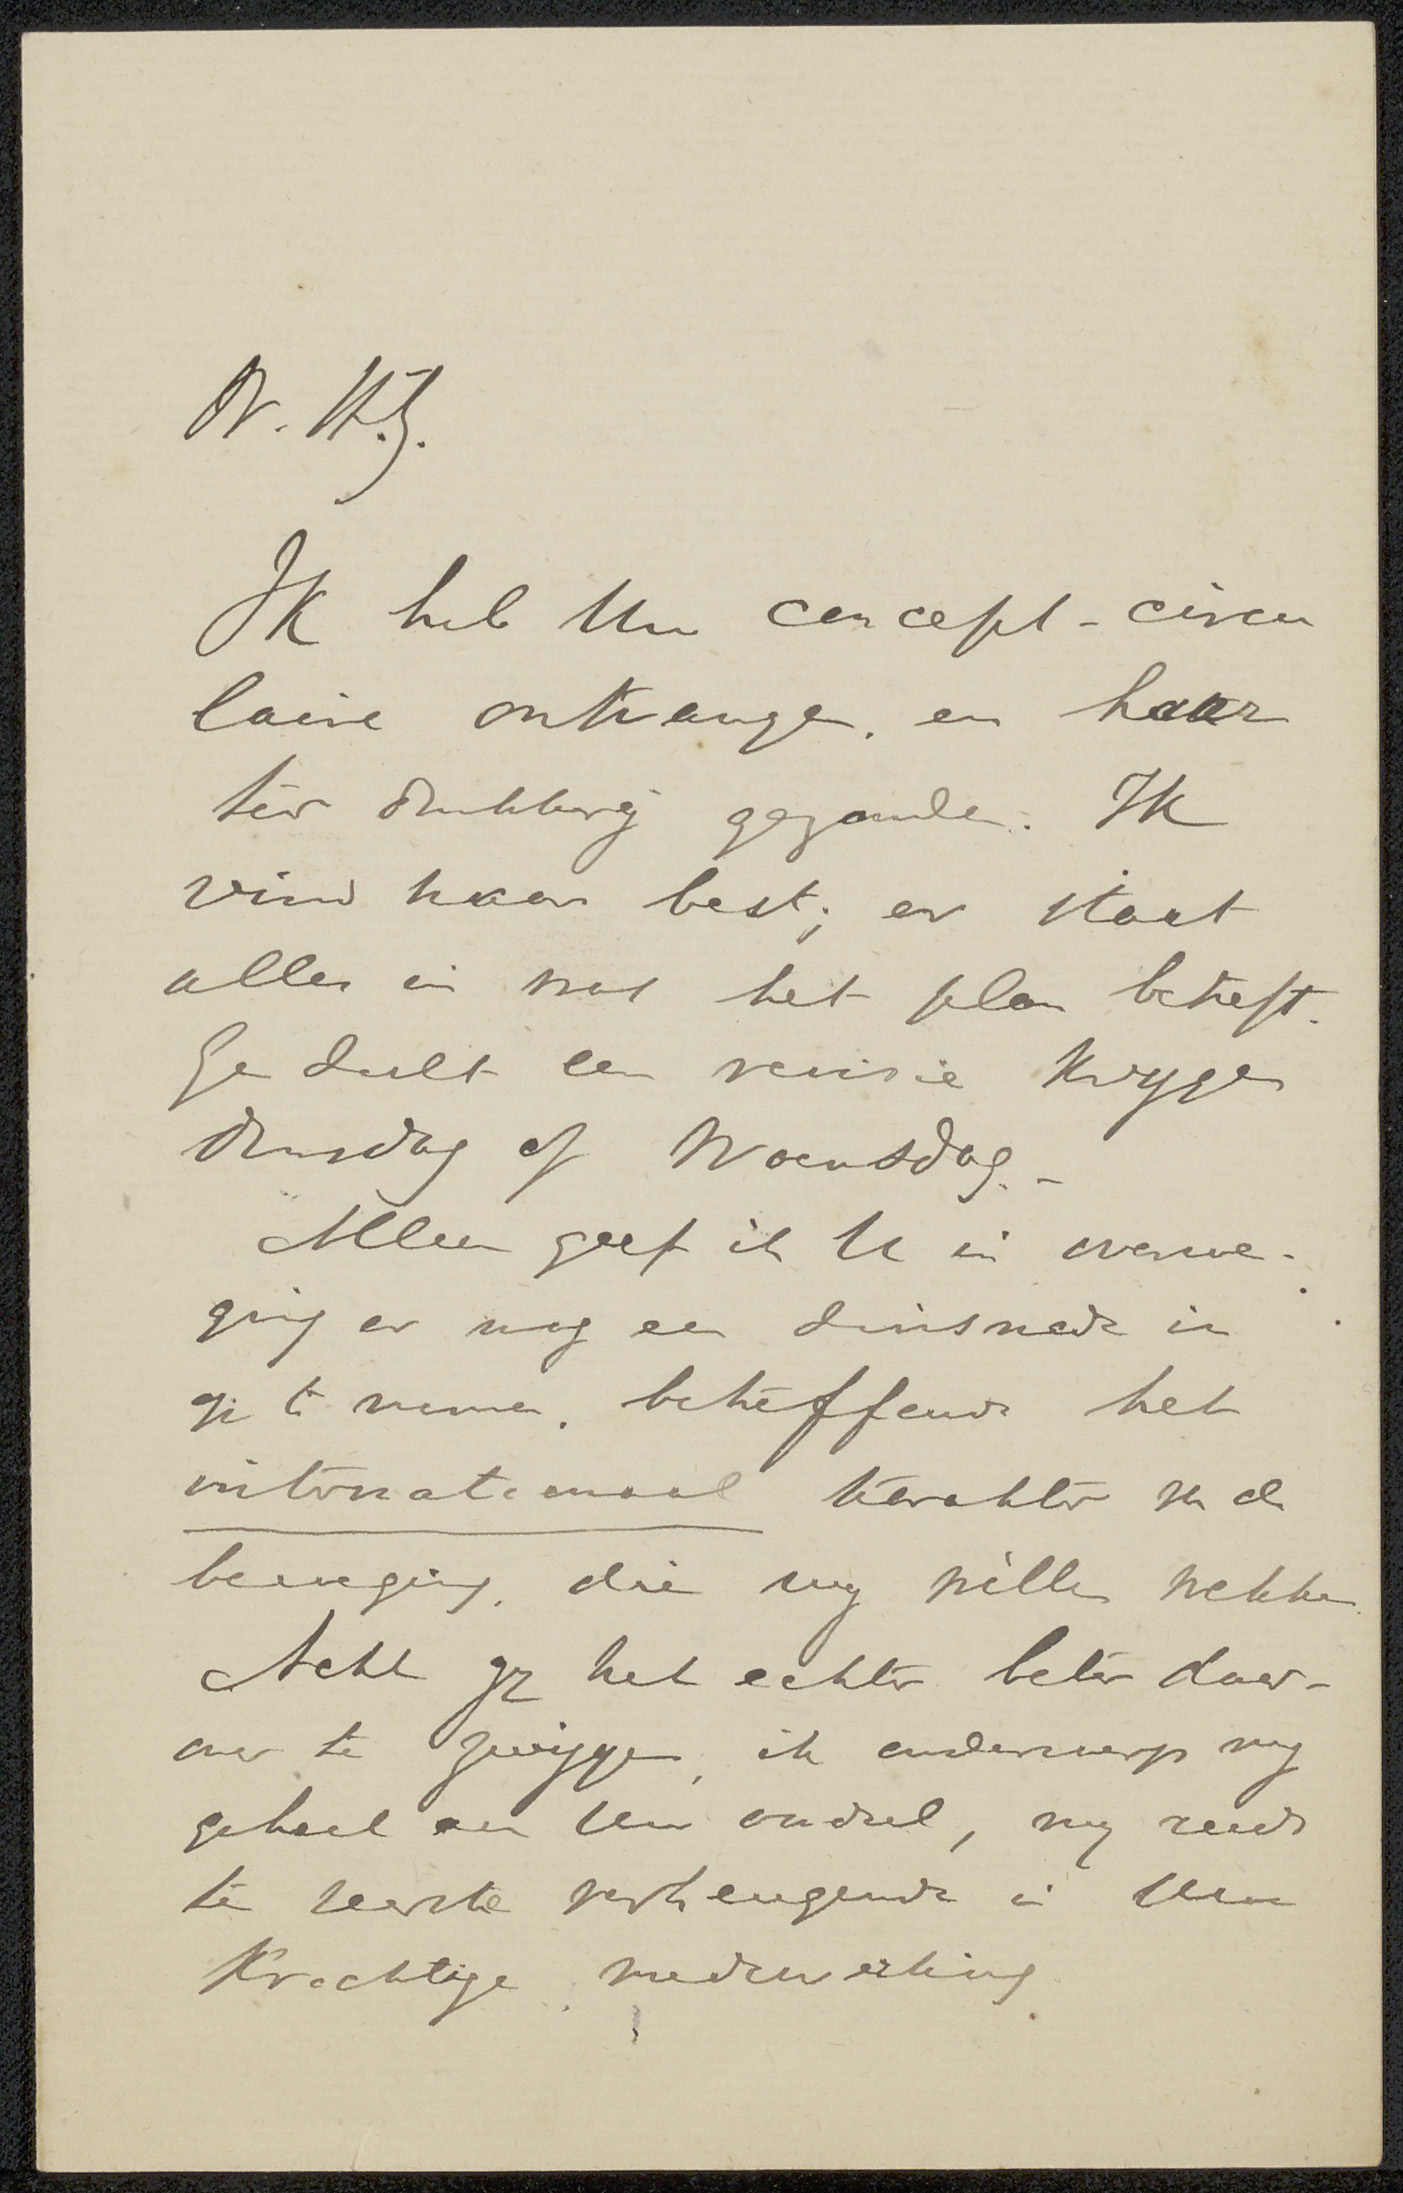 W.H.
Ik heb Uw concept-circu
laire ontvangen. en haar
ter drukkerij gezonden. Ik
vind haar best; er staat
alles in wat het plan betreft.
Ge zult een revisie krijgen
dinsdag of Woensdag.-
Alleen geef ik U in overwe-
ging er nog een zinsnede in
op te nemen, betreffende het
internationaal karakter v. de
beweging, die wij willen wekken.
Acht gij het echter beter daar-
over te zwijgen, ik onderwerp mij
geheel aan Uw oordeel, mij reeds
te zeerste verheugende in Uwe
Krachtige medewerking